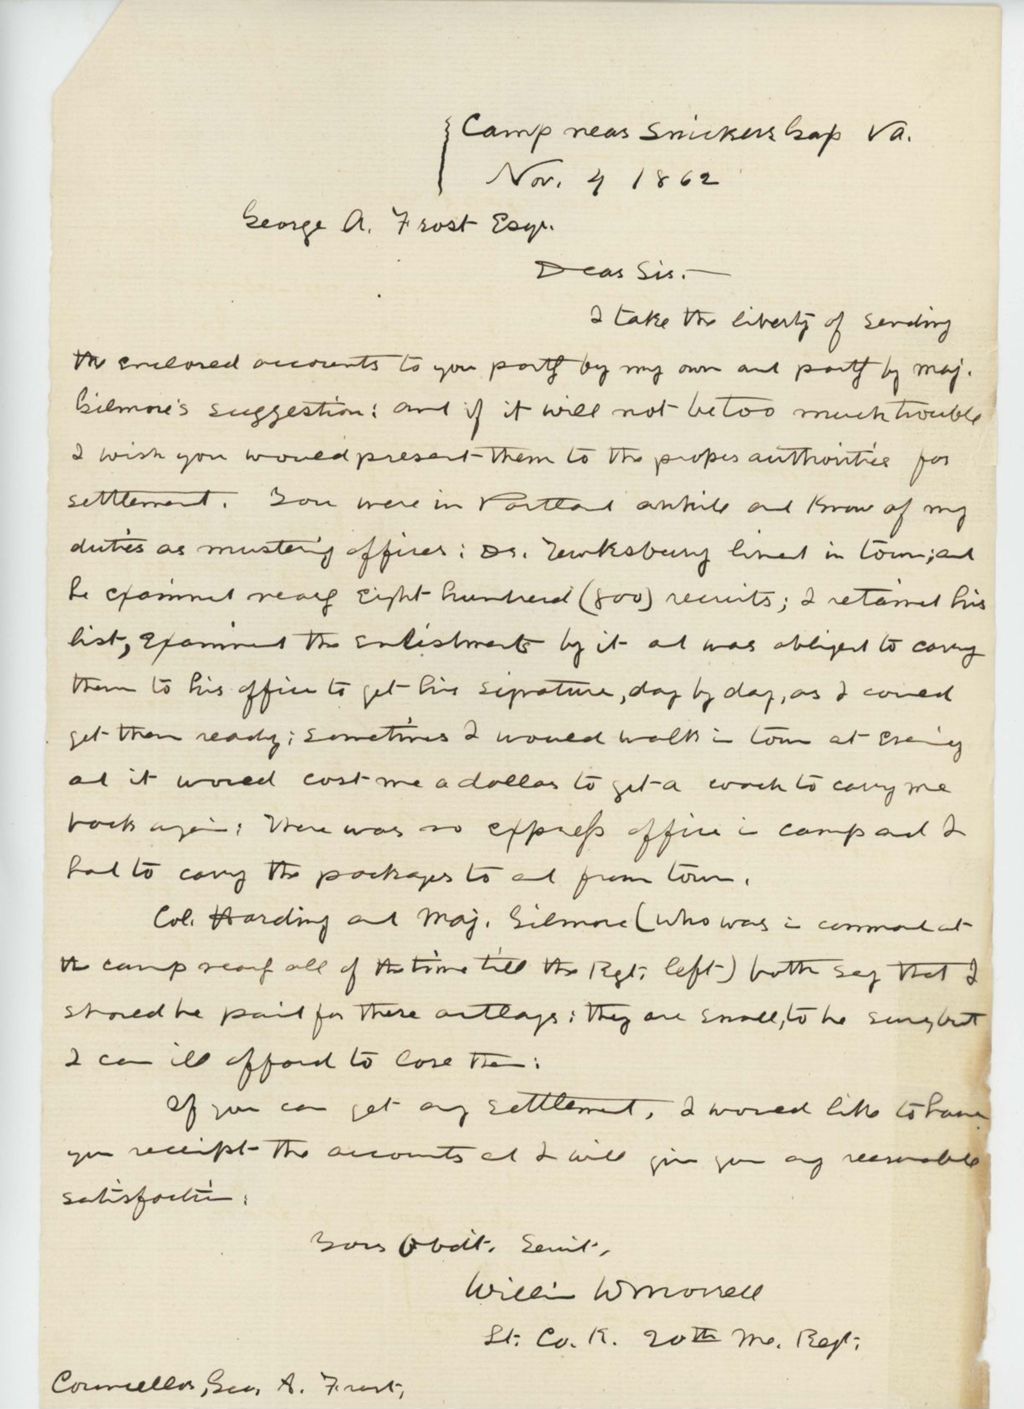 Camp near Snickers Gap Va.
Nov. 4 1862
George A. Frost Esqr.
Dear Sir.—
I take the liberty of sending
the enclosed accounts to you partly by my own and partly by Maj.
Gilmore's suggestion: and if it will not be too much trouble
I wish you would present them to the proper authorities for
settlement. You were in Portland awhile and know of my
duties as mustering officer: Dr. Tewksbury lived in town; and
he examined nearly eight hundred (800) recruits; I retained his
list, examined the enlistments by it and was obliged to carry
them to his office to get his signature, day by day, as I could
get them ready; sometimes I would walk in town at evening
and it would cost me a dollar to get a coach to carry me
back again: there was no express office in camp and I
had to carry the packages to and from town.
Col. Harding and Maj. Gilmore (who was in command at
the camp nearly all of the time till the Regt. left) both say that I
should be paid for these outlays: they are small, to be sure, but
I can ill afford to lose them:
If you can get any settlement, I would like to have
you receipt the accounts and I will give you any reasonable
satisfaction:
Your Obdt. Servt.
William W Morrell
Lt. Co. K. 20th Me. Regt.
Councellor, Geo. A. Frost,